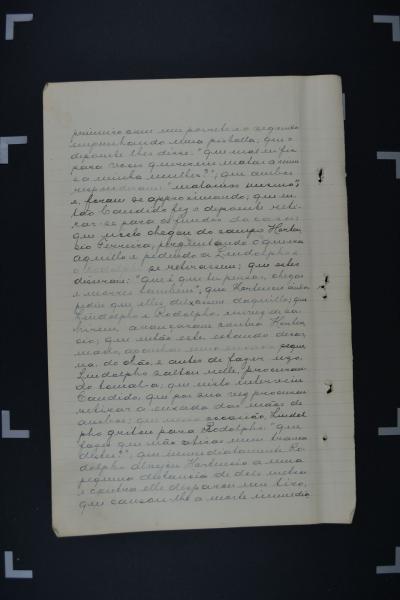 primeiro com um porrete e o segundo
empunhando uma pistola; que o
depoente lhes disse: "que mal eu fiz
para voces quererem matar a mim
e a minha mulher?"; que ambos
responderam: "matamos mesmo",
e foram se approximando; que en-
tão Candido fez o depoente reti-
rar-se para os fundos da casa;
que nisto chegou do campo Horten-
cio Ferreira, perguntando o que era
aquillo e pedindo a Lindolpho e
a Rodolpho se retirassem; que estes
disseram: "que é que pensa, chegou
e morre tambem"; que Hortencio ainda
pediu que elles deixassem daquillo; que
Lindolpho e Rodolpho, em vez de sa-
hirem, avançaram contra Horten-
cio; que então este, estando desar-
mado, apanhou uma enxada peque-
na do chão e antes de fazer uso,
Lindolpho saltou nelle, procuran-
do tomal-a; que nisto interveio
Candido, que por sua vez procurou
retirar a enxada das mãos de
ambos; que nessa occasião Lindol-
pho gritou para Rodolpho: "que
fazes que não atiras num
destes?"; que immediatamente Ro-
dolpho Hortencio a uma
pequena distancia de dois metros
e contra elle disparou um tiro,
que causou-lhe a morte immedia